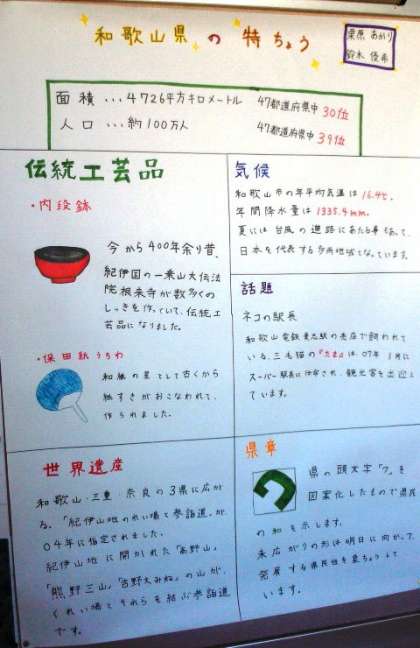 和歌山県の特ちょう
栗原 あかり
鈴木 優希
面積...4726平方キロメートル 47都道府県中30位
人口...約100万人 47都道府県中39位
伝統工芸品
・内段鉢
今から400年余り昔、
紀伊国の一乗山大伝法
院根来寺が数多くの
しっきを作っていて、伝統工
芸品になりました。
・保田紙うちわ
和紙の里として古くから
紙すきがおこなわれて、
作られました。
気候
和歌山市の年平均気温は16.4℃、
年間降水量は1335.4mm。
夏には台風の進路にあたる事もあって、
日本を代表する多雨地域となっています。
話題
ネコの駅長
和歌山電鉄貴志駅の売店で飼われて
いる三毛猫の「たま」は、07年1月に
スーパー駅長に任命され、観光客を出迎え
ています。
世界遺産
和歌山・三重・奈良の3県に広が
る、「紀伊山地のれい場と参詣道」が、
04年に指定されました。
紀伊山地に開かれた「高野山」
「熊野三山」「吉野大みね」の山が、
くれい場とそれらを結ぶ参詣道
です。
県章
県の頭文字「ワ」を
図案化したもので県民
の和を示します。
末広がりの形は明日に向かって
発展する県民性を象ちょうして
います。